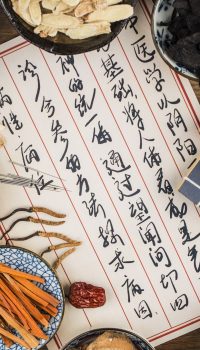 中医学以阴阳
基础将人体看成是
神的统一体通过望闻问切四
诊合参的方法探求病因
病性病位